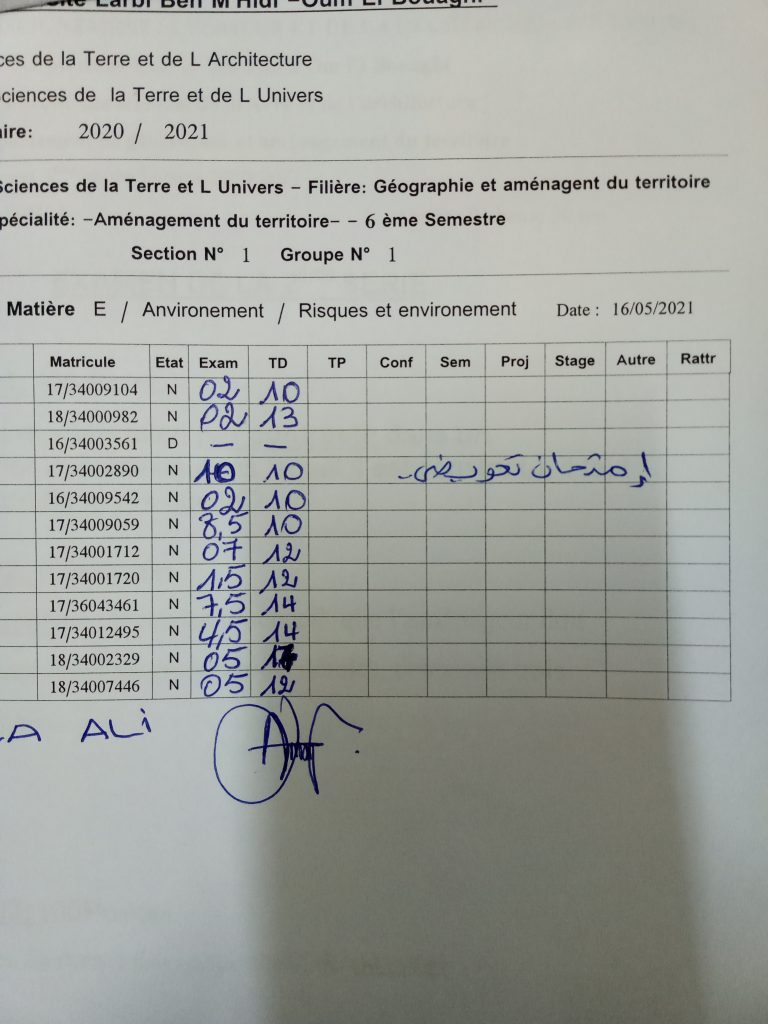 Larbi Ben M'Hidi -Oum El Bouaghi
ces de la Terre et de L Architecture
ciences de la Terre et de L Univers
aire: 2020 / 2021
Sciences de la Terre et L Univers - Filière: Géographie et aménagent du territoire
pécialité: -Aménagement du territoire- - 6 ème Semestre
Section N° 1 Groupe N° 1
Matière E / Anvironement / Risques et environement Date : 16/05/2021
Matricule Etat Exam TD TP Conf Sem Proj Stage Autre Rattr
17/34009104 N 02 10
18/34000982 N 02 13
16/34003561 D - -
17/34002890 N 10 10 إمتحان تعويضي
16/34009542 N 02 10
17/34009059 N 8,5 10
17/34001712 N 07 12
17/34001720 N 1,5 12
17/36043461 N 7,5 14
17/34012495 N 4,5 14
18/34002329 N 05
18/34007446 N 05 12
A ALi